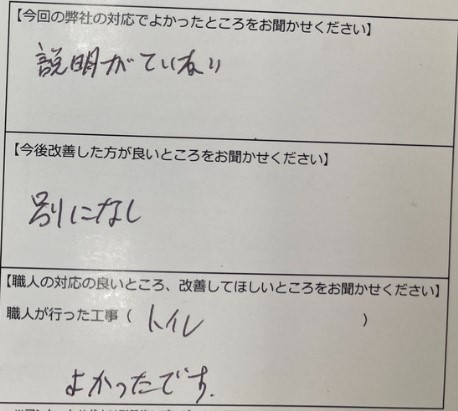 【今回の弊社の対応でよかったところをお聞かせください】
説明がていねい
【今後改善した方が良いところをお聞かせください】
別になし
【職人の対応の良いところ、改善してほしいところをお聞かせください】
職人が行った工事（ トイレ ）
よかったです.